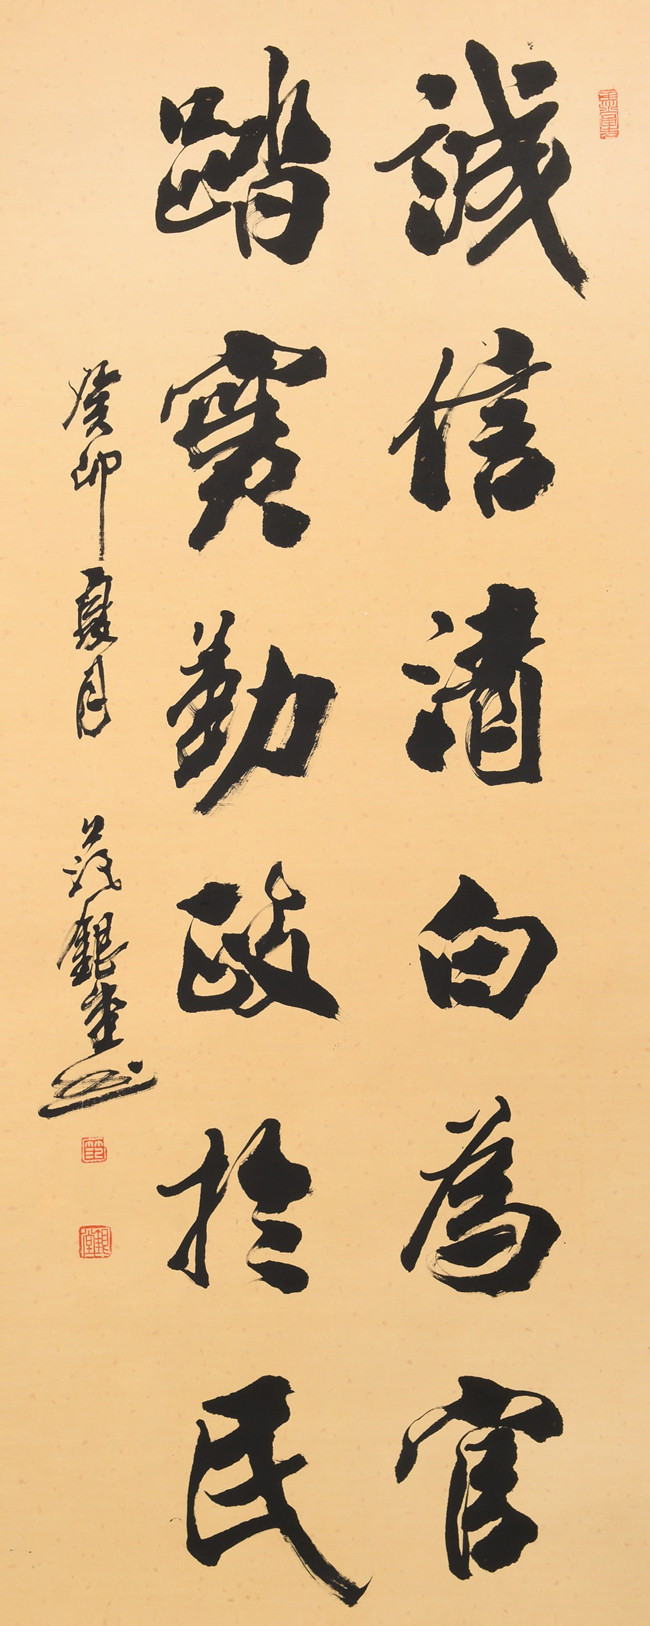 誠信清白為官
踏實勤政於民
癸卯夏月
銀堂